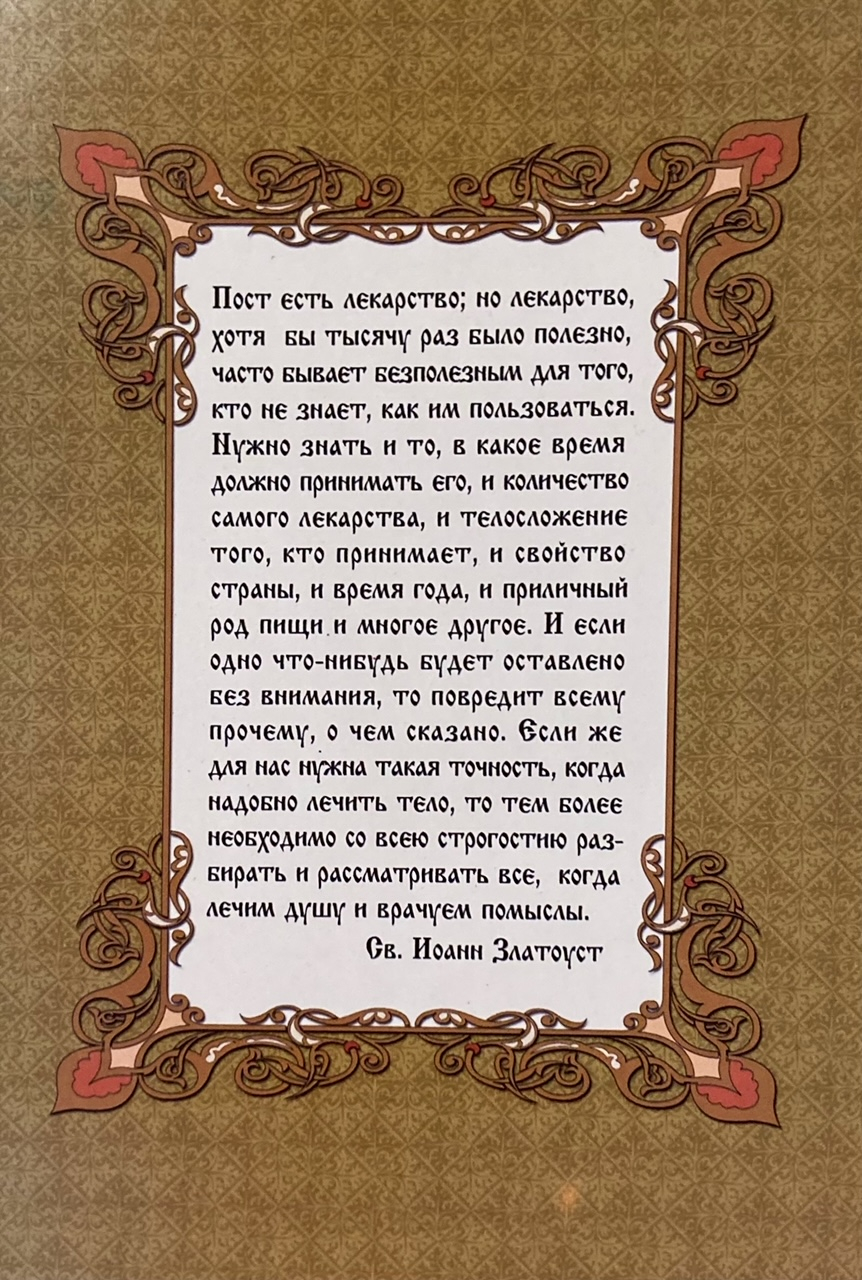 Пост есть лекарство; но лекарство,
хотя бы тысячу раз было полезно,
часто бывает безполезным для того,
кто не знает, как им пользоваться.
Нужно знать и то, в какое время
должно принимать его, и количество
самого лекарства, и телосложение
того, кто принимает, и свойство
страны, и время года, и приличный
род пищи и многое другое. И если
одно что-нибудь будет оставлено
без внимания, то повредит всему
прочему, о чем сказано. Если же
для нас нужна такая точность, когда
надобно лечить тело, то тем более
необходимо со всею строгостию раз-
бирать и рассматривать все, когда
лечим душу и врачуем помыслы.
Св. Иоанн Златоуст